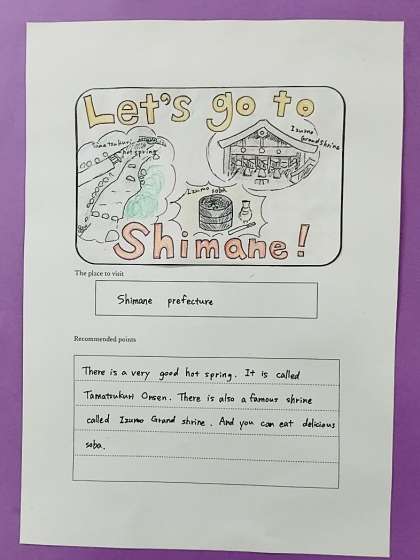 Let's go to
Izumo
Grand shrine
Tamatsukuri
hot spring
Izumo soba
Shimane!
The place to visit
Shimane prefecture
Recommended points
There is a very good hot spring. It is called
Tamatsukuri Onsen. There is also a famous shrine
called Izumo Grand shrine. And you can eat delicious
soba.